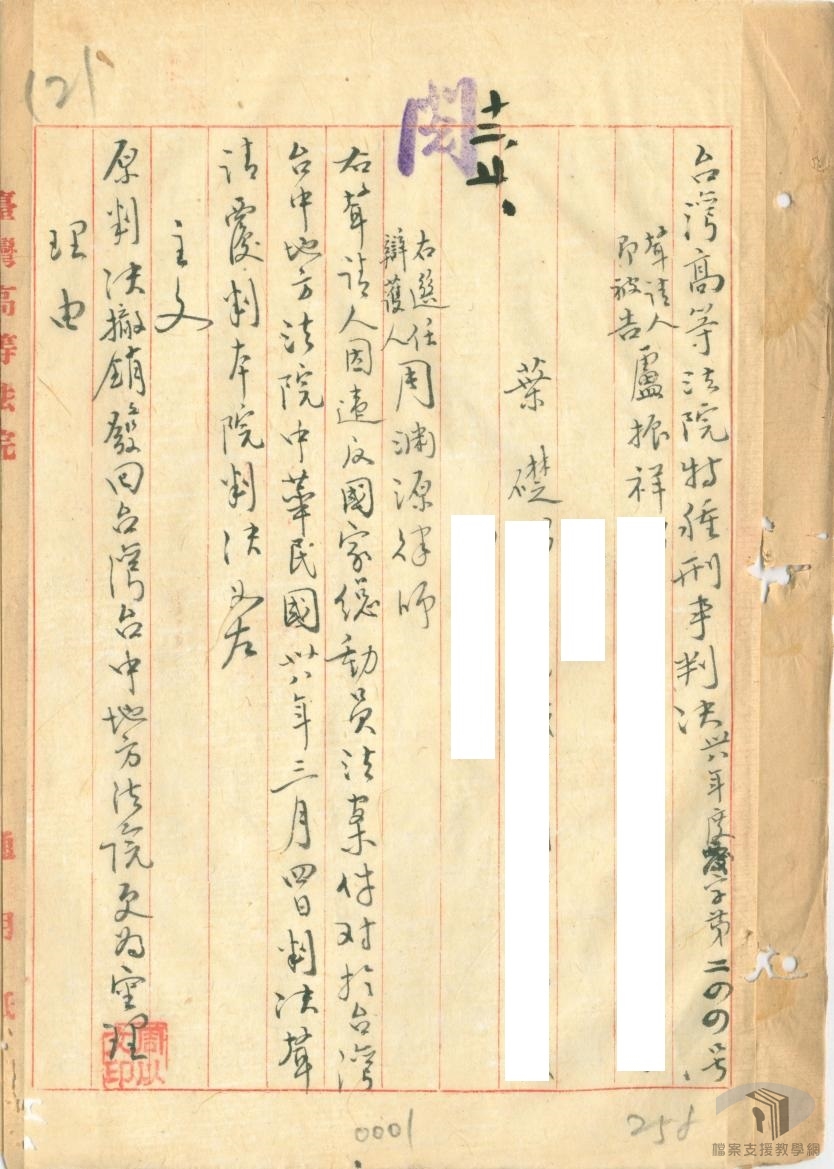 (2)
閱
十二、廿、
台灣高等法院特種刑事判決 卅八年度覆字第二〇〇号
聲請人
即被告
盧振祥
葉 礎
右選任
辯護人
周渊源律师
右聲請人因違反國家總動員法案件对於台灣
台中地方法院中華民國卅八年三月四日判決聲
請覆判本院判決如左
主文
原判決撤銷發回台灣台中地方法院更为審理
理由
臺灣高等法院
通用紙
0001
258
檔案支援教學網